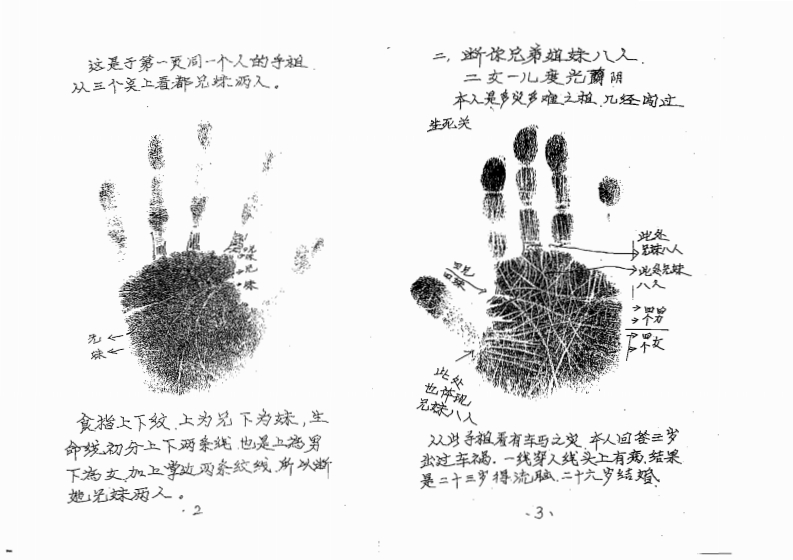 这是于第一页同一个人的手相
从三个点上看都兄妹两人。
兄
妹
兄
妹
兄
妹
食指上下纹.上为兄下为妹,生
命线初分上下两条线也是上为男
下为女.加上掌边两条纹线.所以断
她兄妹两人。
·2
二,断你兄弟姐妹八人
二女一儿度光阴
本人是多灾多难之相.几经闯过
生死关
此处
兄妹八人
此处兄妹
八人
四兄
四妹
四个男
四个女
此处
也体现
兄妹八人
从此手相看有车马之灾.本人回答三岁
出过车祸.一线穿入线头上有病.结果
是二十三岁得流脑.二十六岁结婚.
·3、